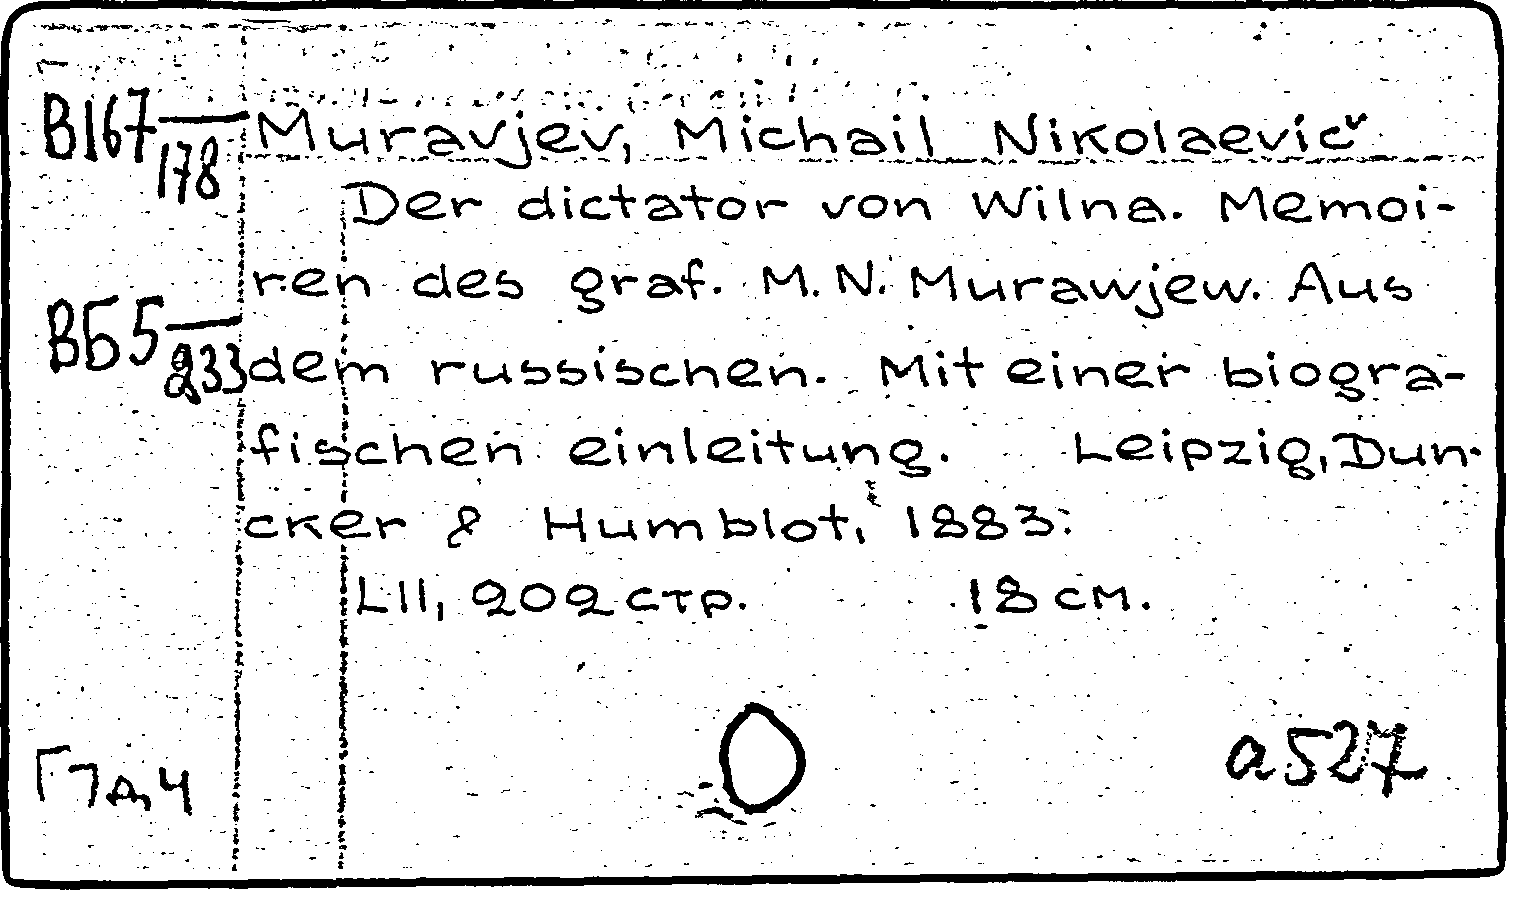 В167/178 Muravjev, Michail Nikolaevič
Der dictator von Wilna. Memoi-
ren des graf. M. N. Murawjew. Aus
ВБ5/233 dem russischen. Mit einer biogra-
fischen einleitung. Leipzig, Dun-
cker & Humblot, 1883.
LII, 202 стр. 18 см.
а527